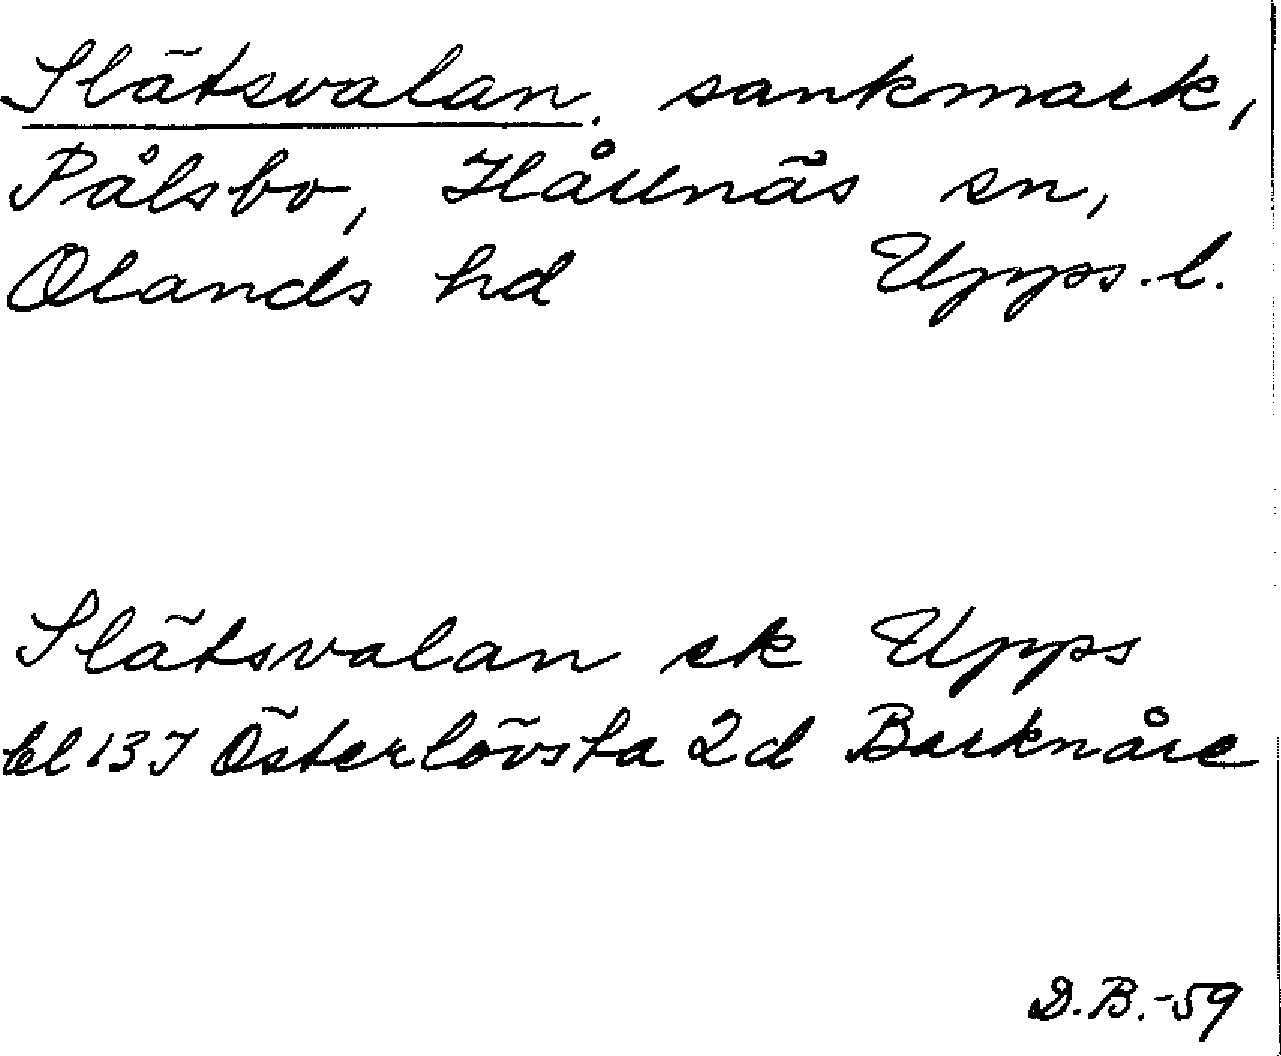 Slätsvalan, sankmark,
Pålsbo, Hållnäs sn,
Olands hd Upps. l.
Slätsvalan ek Upps
bl 13 I Österlövsta 2d Barknåre
D.B.-59